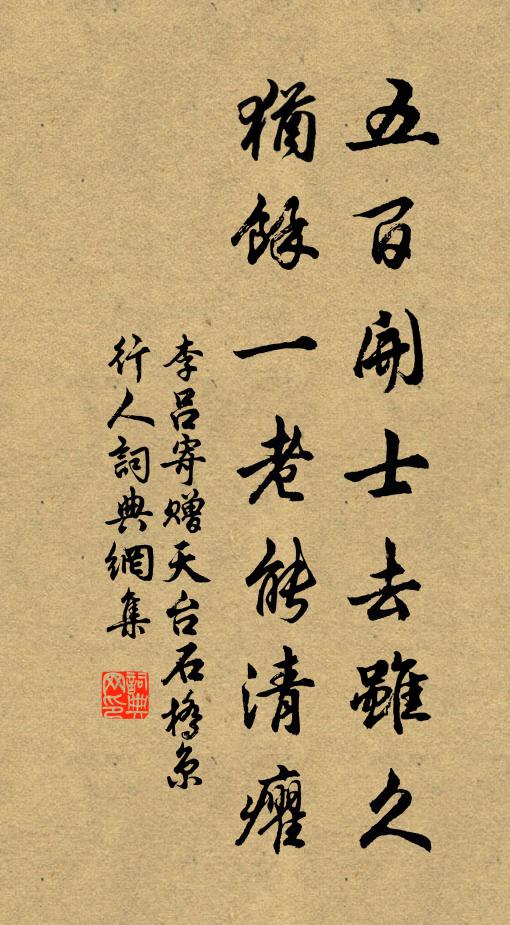 五百開士去雖久
猶餘一老能清癯
李呂寄贈天台石橋京
行人詞典網集
詞典
网印